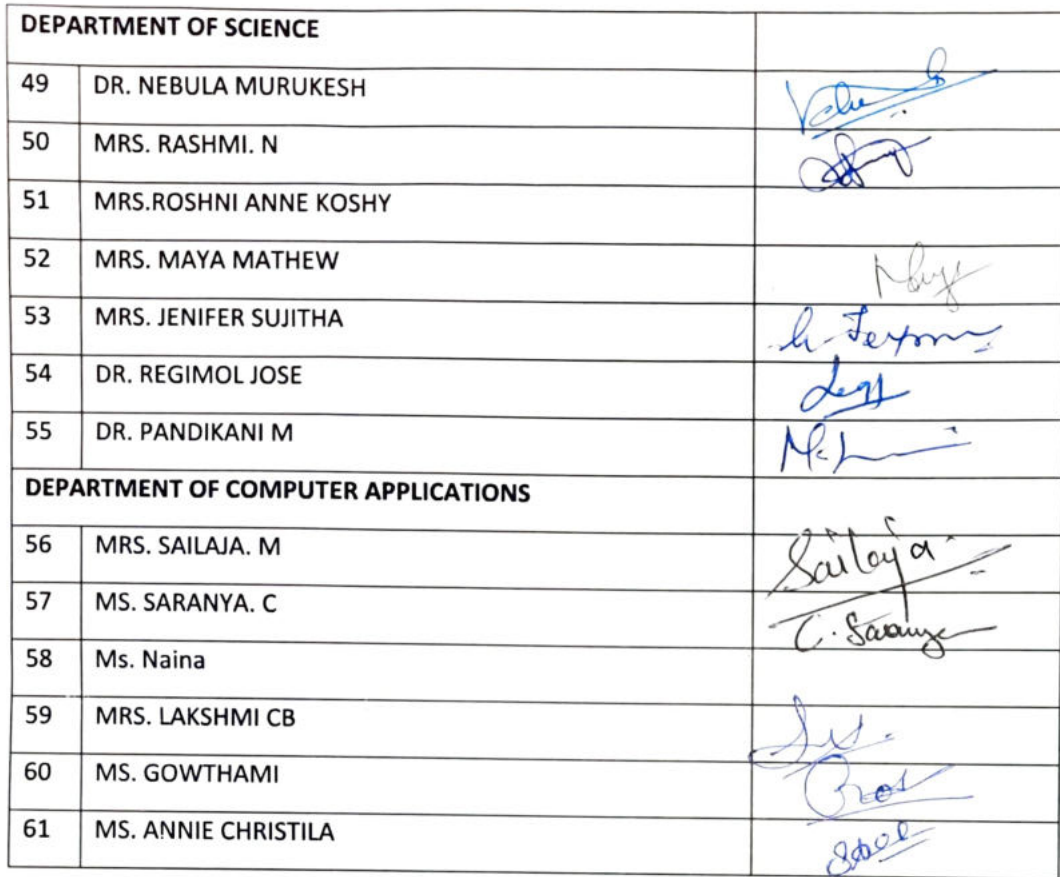 DEPARTMENT OF SCIENCE
49 DR. NEBULA MURUKESH
50 MRS. RASHMI. N
51 MRS.ROSHNI ANNE KOSHY
52 MRS. MAYA MATHEW
53 MRS. JENIFER SUJITHA
54 DR. REGIMOL JOSE
55 DR. PANDIKANI M
DEPARTMENT OF COMPUTER APPLICATIONS
56 MRS. SAILAJA. M Sailaja.
57 MS. SARANYA. C C. Saranya
58 Ms. Naina
59 MRS. LAKSHMI CB
60 MS. GOWTHAMI
61 MS. ANNIE CHRISTILA